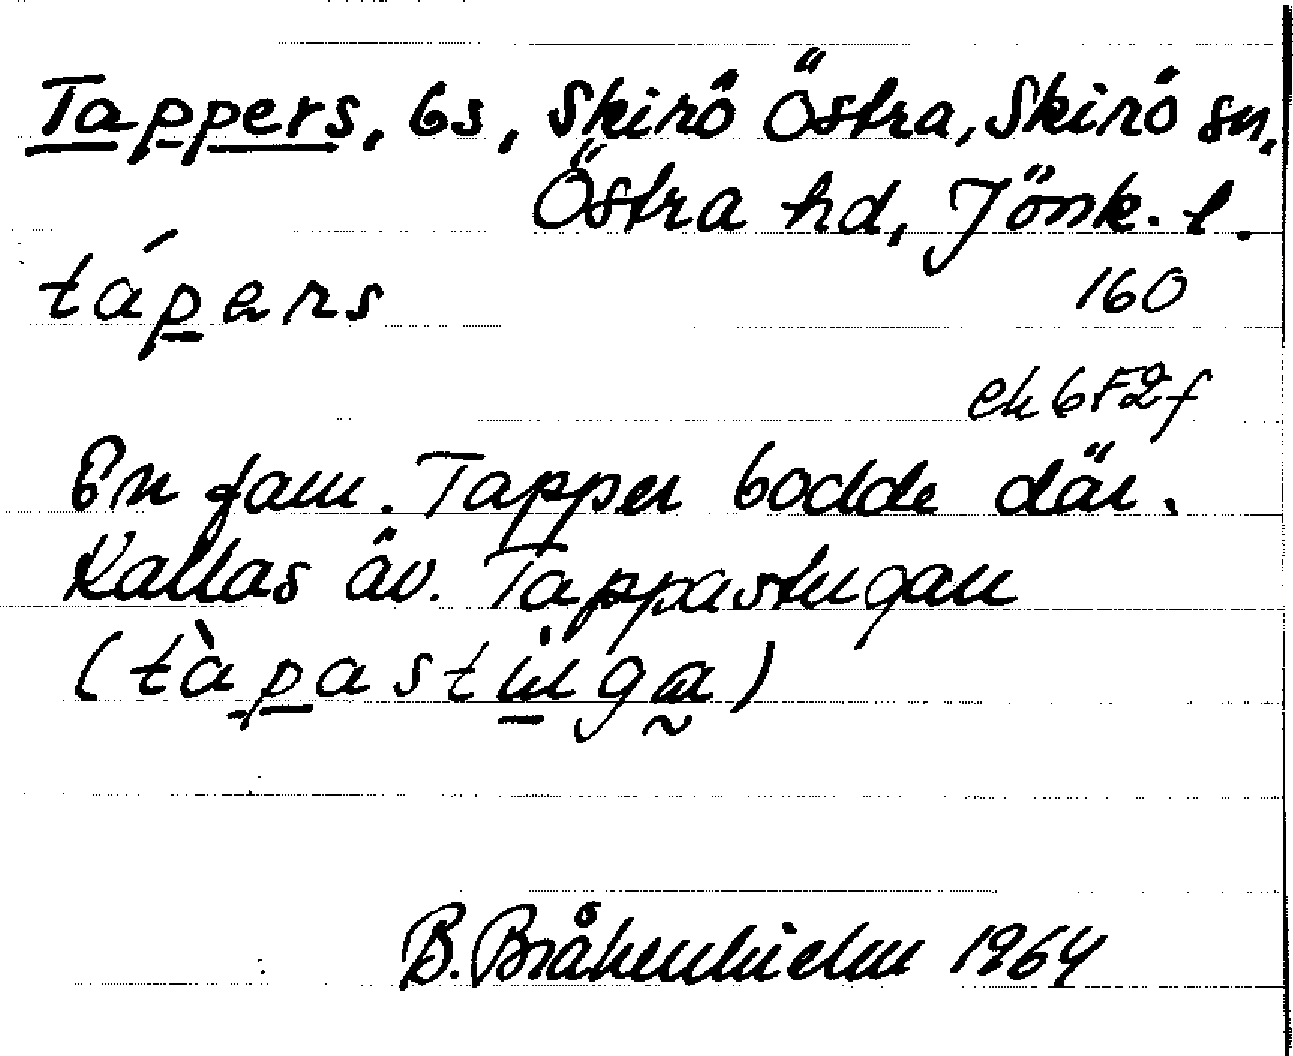 Tappers, bs, Skirö Östra, Skirö sn,
Östra hd, Jönk. l.
tápers
160
ek 6F2f
En fam. Tapper bodde där.
Kallas äv. Tappastugan
(tàpastùga)
B. Bråkenhielm 1964